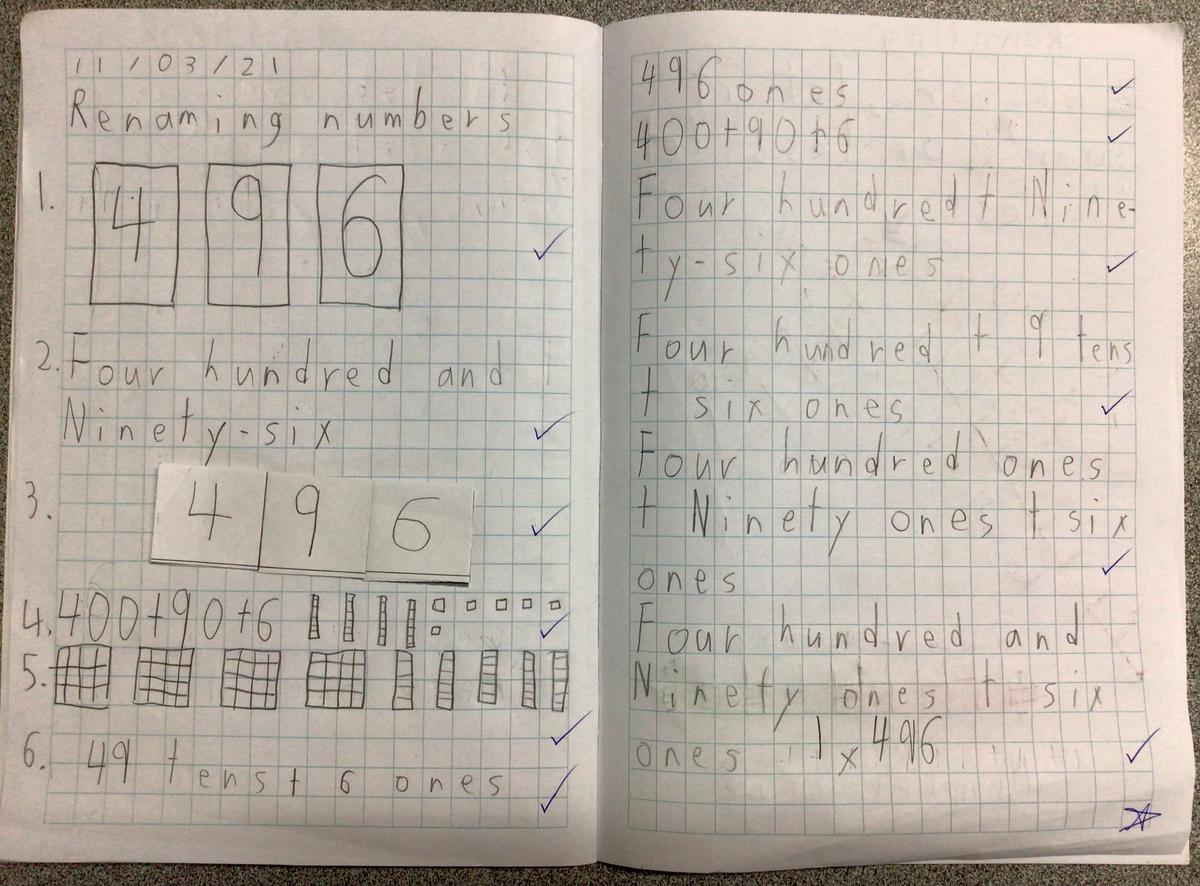 11/03/21
Renaming numbers
1. 4 9 6
2. Four hundred and
Ninety-six
3. 4 9 6
4. 400+90+6
5.
6. 49 tens+ 6 ones
496 ones
400+90+6
Four hundred+ Nine-
ty-six ones
Four hundred + 9 tens
+ six ones
Four hundred ones
+ Ninety ones + six
ones
Four hundred and
Ninety ones + six
ones 1x496